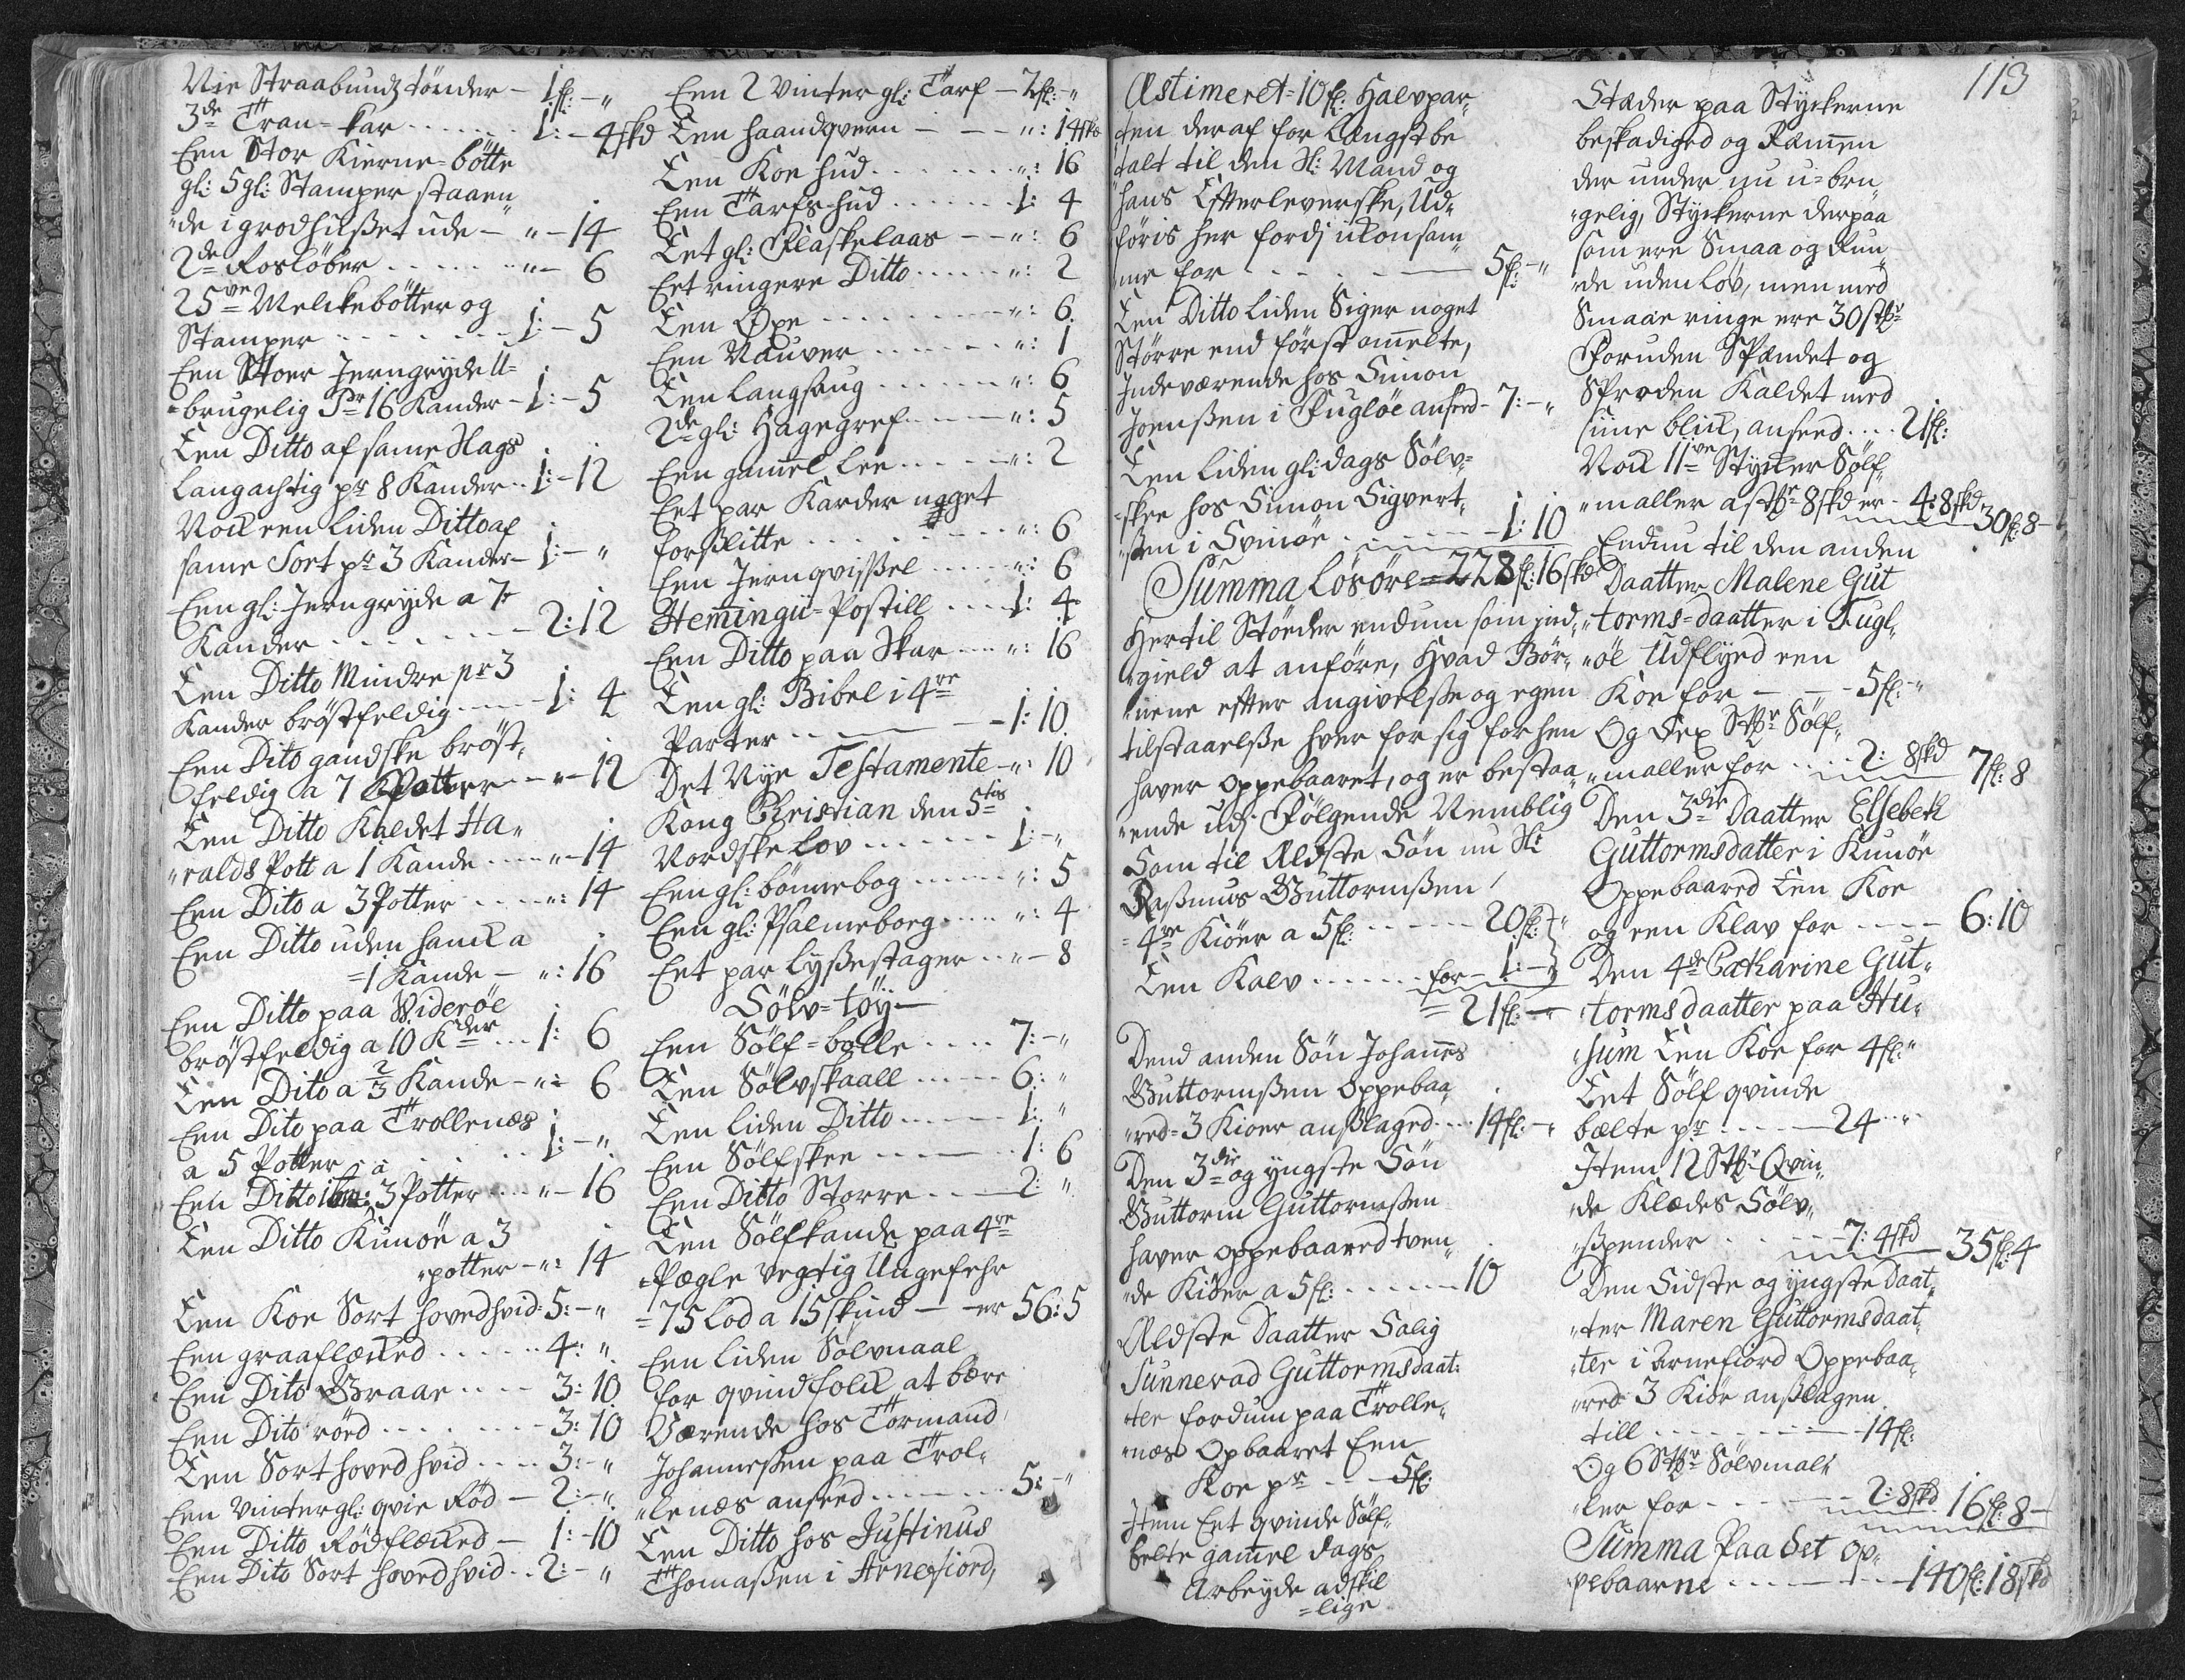 Nie Straabunds tønder - 1 fl: - "
3de Tran-kar ....... 1: - 4 skd
Een Stor Kierne-bøtte
gl: 5 gl: Stamper staaen„
„de i grodhuset ude - " - 14
2de Rosløber ....... " - 6
25ve Melckebøtter og
Stamper ....... 1: - 5
Een Stoer Jerngryde U=
=brugelig Pr 16 Kander - 1: - 5
Een Ditto af same Slags
langachtig pr 8 Kander .. 1: - 12
Nock een liden Ditto af
same Sort pr 3 Kander - 1: - "
Een gl: Jerngryde a 7
Kander ....... 2: 12
Een Ditto Mindre pr 3
Kander brøstfeldig ---- 1: 4
Een Dito gandske brøst„
feldig a 7 Potter -- " - 12
Een Ditto Kaldet Ha„
„ralds Pott a 1 Kande ---- " - 14
Een Dito a 3 Potter ---- ": 14
Een Ditto uden hanck a
=1 Kande - ": 16
Een Ditto paa Viderøe
brøstfeldig a 10 Kder ... 1: 6
Een Dito a 2/3 Kande - ": 6
Een Dito paa Trollenæs
a 5 Potter ....... 1: - "
Een Ditto ibm: a 3 Potter ... " - 16
Een Ditto Kunøe a 3
„potter - ": 14
Een Koe Sort hovedhvid: 5: - "
Een graaflæcked ..... 4: "
Een Dito Graae .... 3: 10
Een Dito rød ....... 3: 10
Een Sort hoved hvid .... 3: - "
Een Vintergl: qvie Rød - 2: - "
Een Ditto Rødflæcked - 1: - 10
Een Dito Sort hovedhvid .. 2: - "
Een 2 Vinter gl: Tarf - 2 fl: - "
Een haandqvern - - - ": 14 skd
Een Koe hud ....... ": 16
Een Tarfs-hud ...... 1: 4
Eet gl: Flaskelaas -- ": 6
Eet ringere Ditto ..... ": 2
Een Øxe ....... ": 6
Een Nauver ...... ": 1
Een langsaug ...... ": 6
2de gl: Hagegref ..... ": 5
Een gamel Lee ..... ": 2
Eet par Karder noget
forslitte ....... ": 6
Een Jernqvissel .... ": 6
Hemingii-Postill .... 1: 4
Een Ditto paa Skar ... ": 16
Een gl: Bibel i 4re
Parter ....... 1: 10
Det Nye Testamente - ": 10
Kong Christian den 5tis
Nordske Lov ...... 1: - "
Een gl: bønnebog ..... ": 5
Een gl: Psalmeboeg ..... ": 4
Eet par lysestager .. " - 8
Sølv-tøy -
Een Sølf=bolle .... 7: - "
Een Sølvskaall .... 6: "
Een liden Ditto .... 1: "
Een Sølfskee ..... 1: 6
Een Ditto Større ... 2: "
Een Sølfkande paa 4re
„Pægle vegtig Ungefehr
=75 Lod a 15 skind - er 56: 5
Een liden Sølvnaal
for qvindfolck at bære
Værende hos Tormand
Johannessen paa Trol„
„lenæs anseed ....... 5: - "
Een Ditto hos Justinus
Thomassen i Arnefiord,
113
Æstimeret = 10 fl: Halvpar„
ten deraf for Længst be
talt til den Sl: Mand og
hans Efterleverske, Ud„
føris her fordi ickon sam„
me for ....... 5 fl: - "
Een Ditto liden Siger noget
Større end først omelte,
Indeværende hos Simon
Joensen i Fugløe anseed - 7: - "
Een liden gl: dags Sølv=
=skee hos Simon Sigvert„
„sen i Svinøe ....... 1: 10
Summa Løsøre = 228 fl: 16 skd
Hertil Støeder endnu som ind„
„gield at anføre, hvad Bør„
„nene efter angivelse og egen
tilstaaelse hver for sig forhen
haver oppebaaret, og er bestaa
„ende udj Følgende Nemblig
Som til Ældste Søn nu Sl:
Rasmus Guttormsen
=4re Kiøer a 5 fl: ...... 20 fl: "
Een Kalv ...... for - 1: - "
= 21 fl: - "
Dend anden Søn Johanes
Guttormsen Oppebaa„
„red = 3 Kioer anslaged .... 14 fl: - "
Den 3die og yngste Søn
Guttorm Guttormsen
haver oppebaared tven„
„de Kiøer a 5 fl: ...... 10
Ældste Daatter Salig
Sunnevad Guttormsdaat:
ter fordum paa Trolle„
„næs Opbaaret Een
Koe pr ---- 5 fl:
Item Eet qvinde Sølf„
belte gamel dags
Arbeyde adskil
=lige
Stæder paa Styckerne
beskadiged og Remen
der under nu u=bru„
„gelig, Styckerne derpaa
som ere Smaa og Run„
„de uden Løv, men med
Smaae ringe ere 30 Stkr
Foruden Spændet og
Sproden Kaldet med
sine blick, anseed .... 21 fl:
Nock 11ve Stycker Sølf„
„maller a Stkr 8 skd er - 4: 8 skd 30 fl: 8 -
Endnu til den anden
Daatter Malene Gut
„torms=daatter i Fugl„
„øe Udflyed een
Koe for - - - 5 fl: - "
Og Sex Stkr Sølf„
„maller for .... 2: 8 skd 7 fl: 8
Den 3die Daatter Elsebeth
Guttormsdatter i Kunøe
Oppebaared Een Koe
og een Klav for ---- 6: 10
Den 4de Catharine Gut„
tormsdaatter paa Hu„
„sum Een Koe for 4 fl: "
Eet Sølf qvinde
bælte pr ---- 24 - "
Item 12 Stkr Qvin„
„de Klædes Sølv„
„spender ..... 7: 4 skd 35 fl: 4
Den Sidste og yngste Daat„
„ter Maren Guttormsdaat„
„ter i Arnefiord Oppebaa„
„red 3 Kiør anslagen
till ....... 14 fl:
Og 6 Stkr Sølvmal„
„ler for ....... 2: 8 skd 16 fl: 8 -
Summa Paa det op„
pebaarne ....... 140 fl: 18 skd